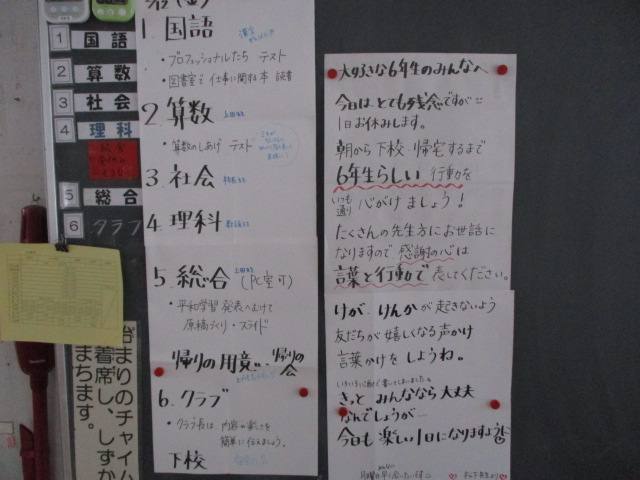 1 国語
2 算数
3 社会
4 理科
5 総合
6 クラブ
始まりのチャイム
着席し、しずか
まちます。
1. 国語
・プロフェッショナルたち テスト
・図書室で 仕事に関する本 読書
2. 算数
・算数のしあげ テスト
3. 社会
4. 理科
5. 総合 (PC室可)
・平和学習 発表へむけて
原稿づくり・スライド
帰りの用意… 帰りの会
6. クラブ
・クラブ長は、内容の楽しさを
簡単に伝えましょう。
下校
大好きな6年生のみんなへ
今日は、とても残念ですが…
1日お休みします。
朝から下校・帰宅するまで
6年生らしい 行動を
いつも通り 心がけましょう!
たくさんの先生方にお世話に
なりますので、感謝の心は
言葉と行動で 表してください。
けが、りんかが起きないよう
友だちが嬉しくなる声かけ
言葉かけをしようね。
きっと みんななら大丈夫
なんでしょうが…
今日も 楽しい1日になりますように